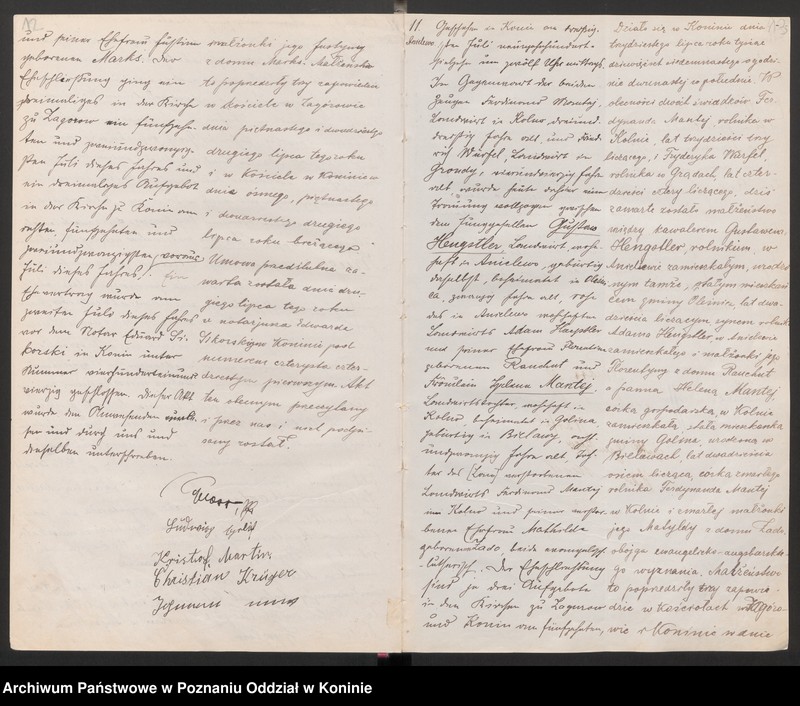 12
und seiner Ehefrau Justine
geborenen Marks. Der
Eheschliessung ging ein
dreimaliges in der Kirche
zu Zagorow am fünfzehn-
ten und zweiundzwanzig-
sten Juli dieses Jahres und
ein dreimaliges Aufgebot
in der Kirche zu Konin am
achten, fünfzehnten und
zweiundzwanzigsten
Juli dieses Jahres. Ein
Ehevertrag wurde am
zweiten Juli dieses Jahres
vor dem Notar Eduard Si-
korski in Konin unter
Nummer vierhunderteinund
vierzig geschlossen. Dieser Akt
wurde den Anwesenden
und durch uns und
denselben unterschrieben.
małżonki jego Justyny
z domu Marks. Małżeństwo
to poprzedziły trzy zapowiedzi
w kościele w Zagórowie
dnia piętnastego i dwudziestego
drugiego lipca tego roku
i w kościele w Koninie
dnia ósmego, piętnastego
i dwudziestego drugiego
lipca roku bieżącego.
Umowa przedślubna za-
warta została dnia dru-
giego lipca tego roku
u notarjusza Edwarda
Sikorskiego w Koninie pod
numerem czterysta czter-
dziestym pierwszym. Akt
ten obecnym przeczytany
i przez nas i nich podpi-
sany został.
Ludwig
Kristof Martin
Christian Krüger
11.
Anielewo
Geschehen in Konin am dreissig-
sten Juli neunzehnhundert-
siebzehn um zwölf Uhr mittags.
In Gegenwart der beiden
Zeugen Ferdinand Mantej,
Landwirt in Kolno, dreiund-
dreissig Jahre alt, und Fried-
rich Würfel, Landwirt in
Grondy, vierundvierzig Jahre
alt, wurde heute daher eine
Trauung vollzogen zwischen
dem Junggesellen Gustav
Hengstler, Landwirt, wohn-
haft in Anielewo, gebürtig
daselbst, beheimatet in Olesni-
ca, zwanzig Jahre alt, Sohn
des in Anielewo wohnhaften
Landwirts Adam Hengstler
und seiner Ehefrau Florentine
geborenen Rauchut und
Fräulein Helena Mantej,
Landwirtstochter, wohnhaft in
Kolno, beheimatet in Golina,
gebürtig in Brelawy, acht-
undzwanzig Jahre alt, Toch-
ter des verstorbenen
Landwirts Ferdinand Mantej
in Kolno und seiner verstor-
benen Ehefrau Mathilde
geborenen Lado, beide evangelisch
lutherisch. Der Eheschliessung
sind je drei Aufgebote
in den Kirchen zu Zagorow
und Konin am fünfzehnten,
Działo się w Koninie dnia
trzydziestego lipca roku tysiąc
dziewięćset siedemnastego o godzi-
nie dwunastej w południe. W
obecności dwóch świadków Fer-
dynanda Mantej rolnika w
Kolnie, lat trzydzieści trzy
liczącego, i Fryderyka Würfel,
rolnika w Grądach, lat czter-
dzieści cztery liczącego, dziś
zawarte zostało małżeństwo
między kawalerem Gustawem
Hengstler, rolnikiem, w
Anielewie zamieszkałym, urodzo-
nym tamże, stałym mieszkań-
cem gminy Oleśnica, lat dwa-
dzieścia liczącym, synem rolnika
Adama Hengstler, w Anielewie
zamieszkałego i małżonki jego
Florentyny z domu Rauchut
a panną Heleną Mantej
córką gospodarską, w Kolnie
zamieszkałą, stałą mieszkanką
gminy Golina, urodzoną w
Brelawach, lat dwadzieścia
osiem liczącą, córką zmarłego
rolnika Ferdynanda Mantej
w Kolnie i zmarłej małżonki
jego Matyldy z domu Lado,
obojga ewangelicko-augsburskie-
go wyznania. Małżeństwo
to poprzedziły trzy zapowie-
dzie w Kościołach w Zagóro-
wie i Koninie w dnie
Archiwum Państwowe w Poznaniu Oddział w Koninie